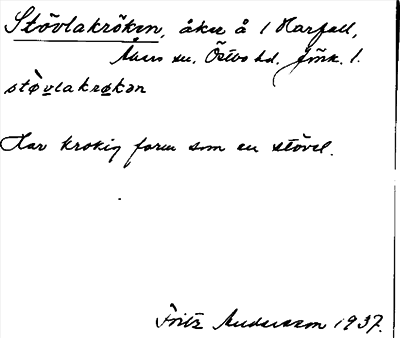 Stövlakröken, åker å 1 Harfall,
Åkers sn. Östbo hd. Jönk. l.
stø̀vlakrøkən
Har krokig form som en stövel.
Fritz Andersson 1937.